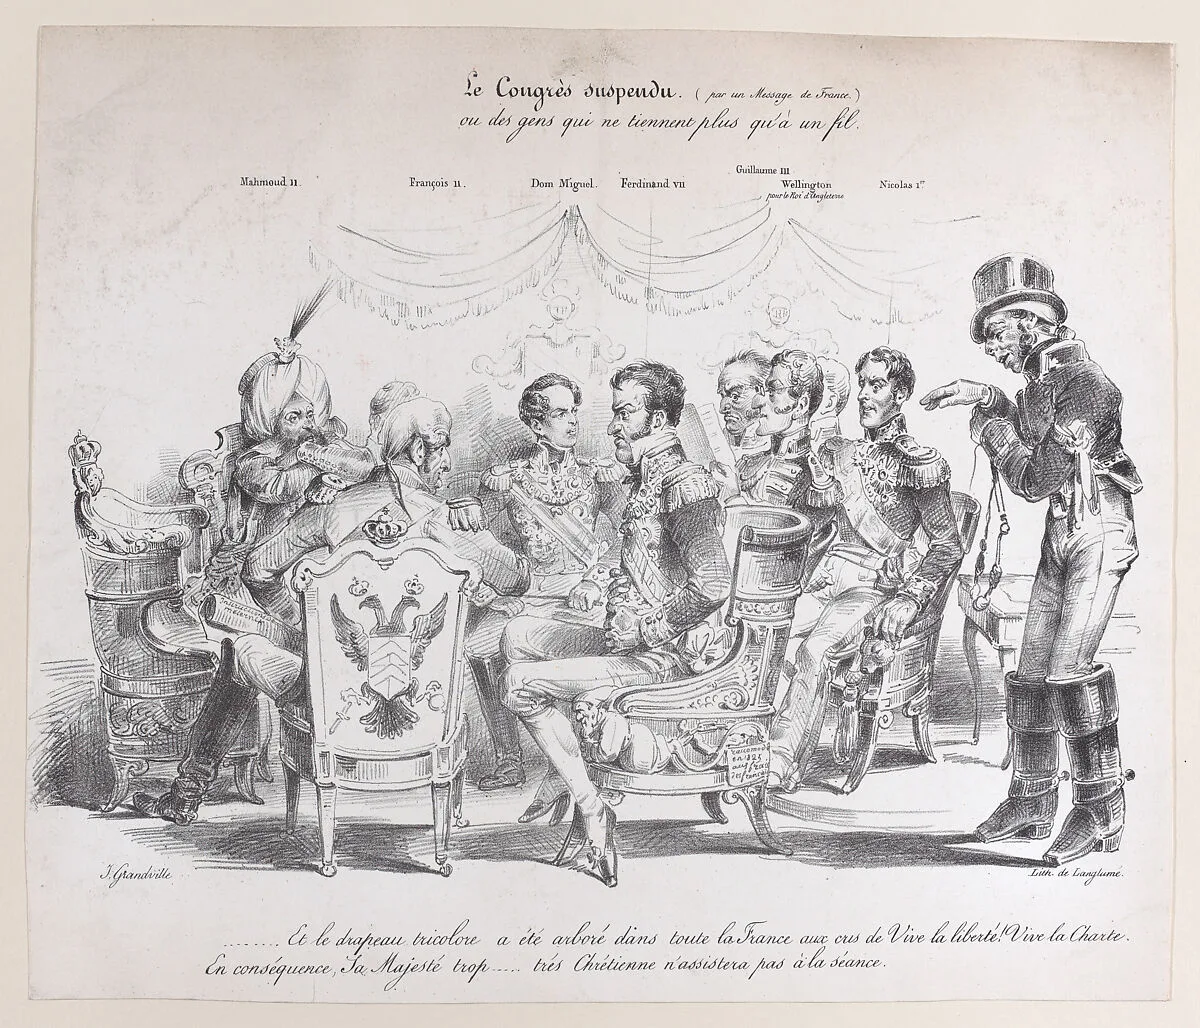 Le Congrès suspendu. ( par un Message de France.)
ou des gens qui ne tiennent plus qu'à un fil.
Mahmoud II.
François II.
Dom Miguel.
Ferdinand VII
Guillaume III
Wellington
pour le Roi d'Angleterre
Nicolas 1er
raccomodé
en 1823
aux frais
des français
J. Grandville
Lith. de Langlumé.
........ Et le drapeau tricolore a été arboré dans toute la France aux cris de Vive la liberté! Vive la Charte.
En conséquence, Sa Majesté trop ..... trés Chrétienne n'assistera pas à la séance.